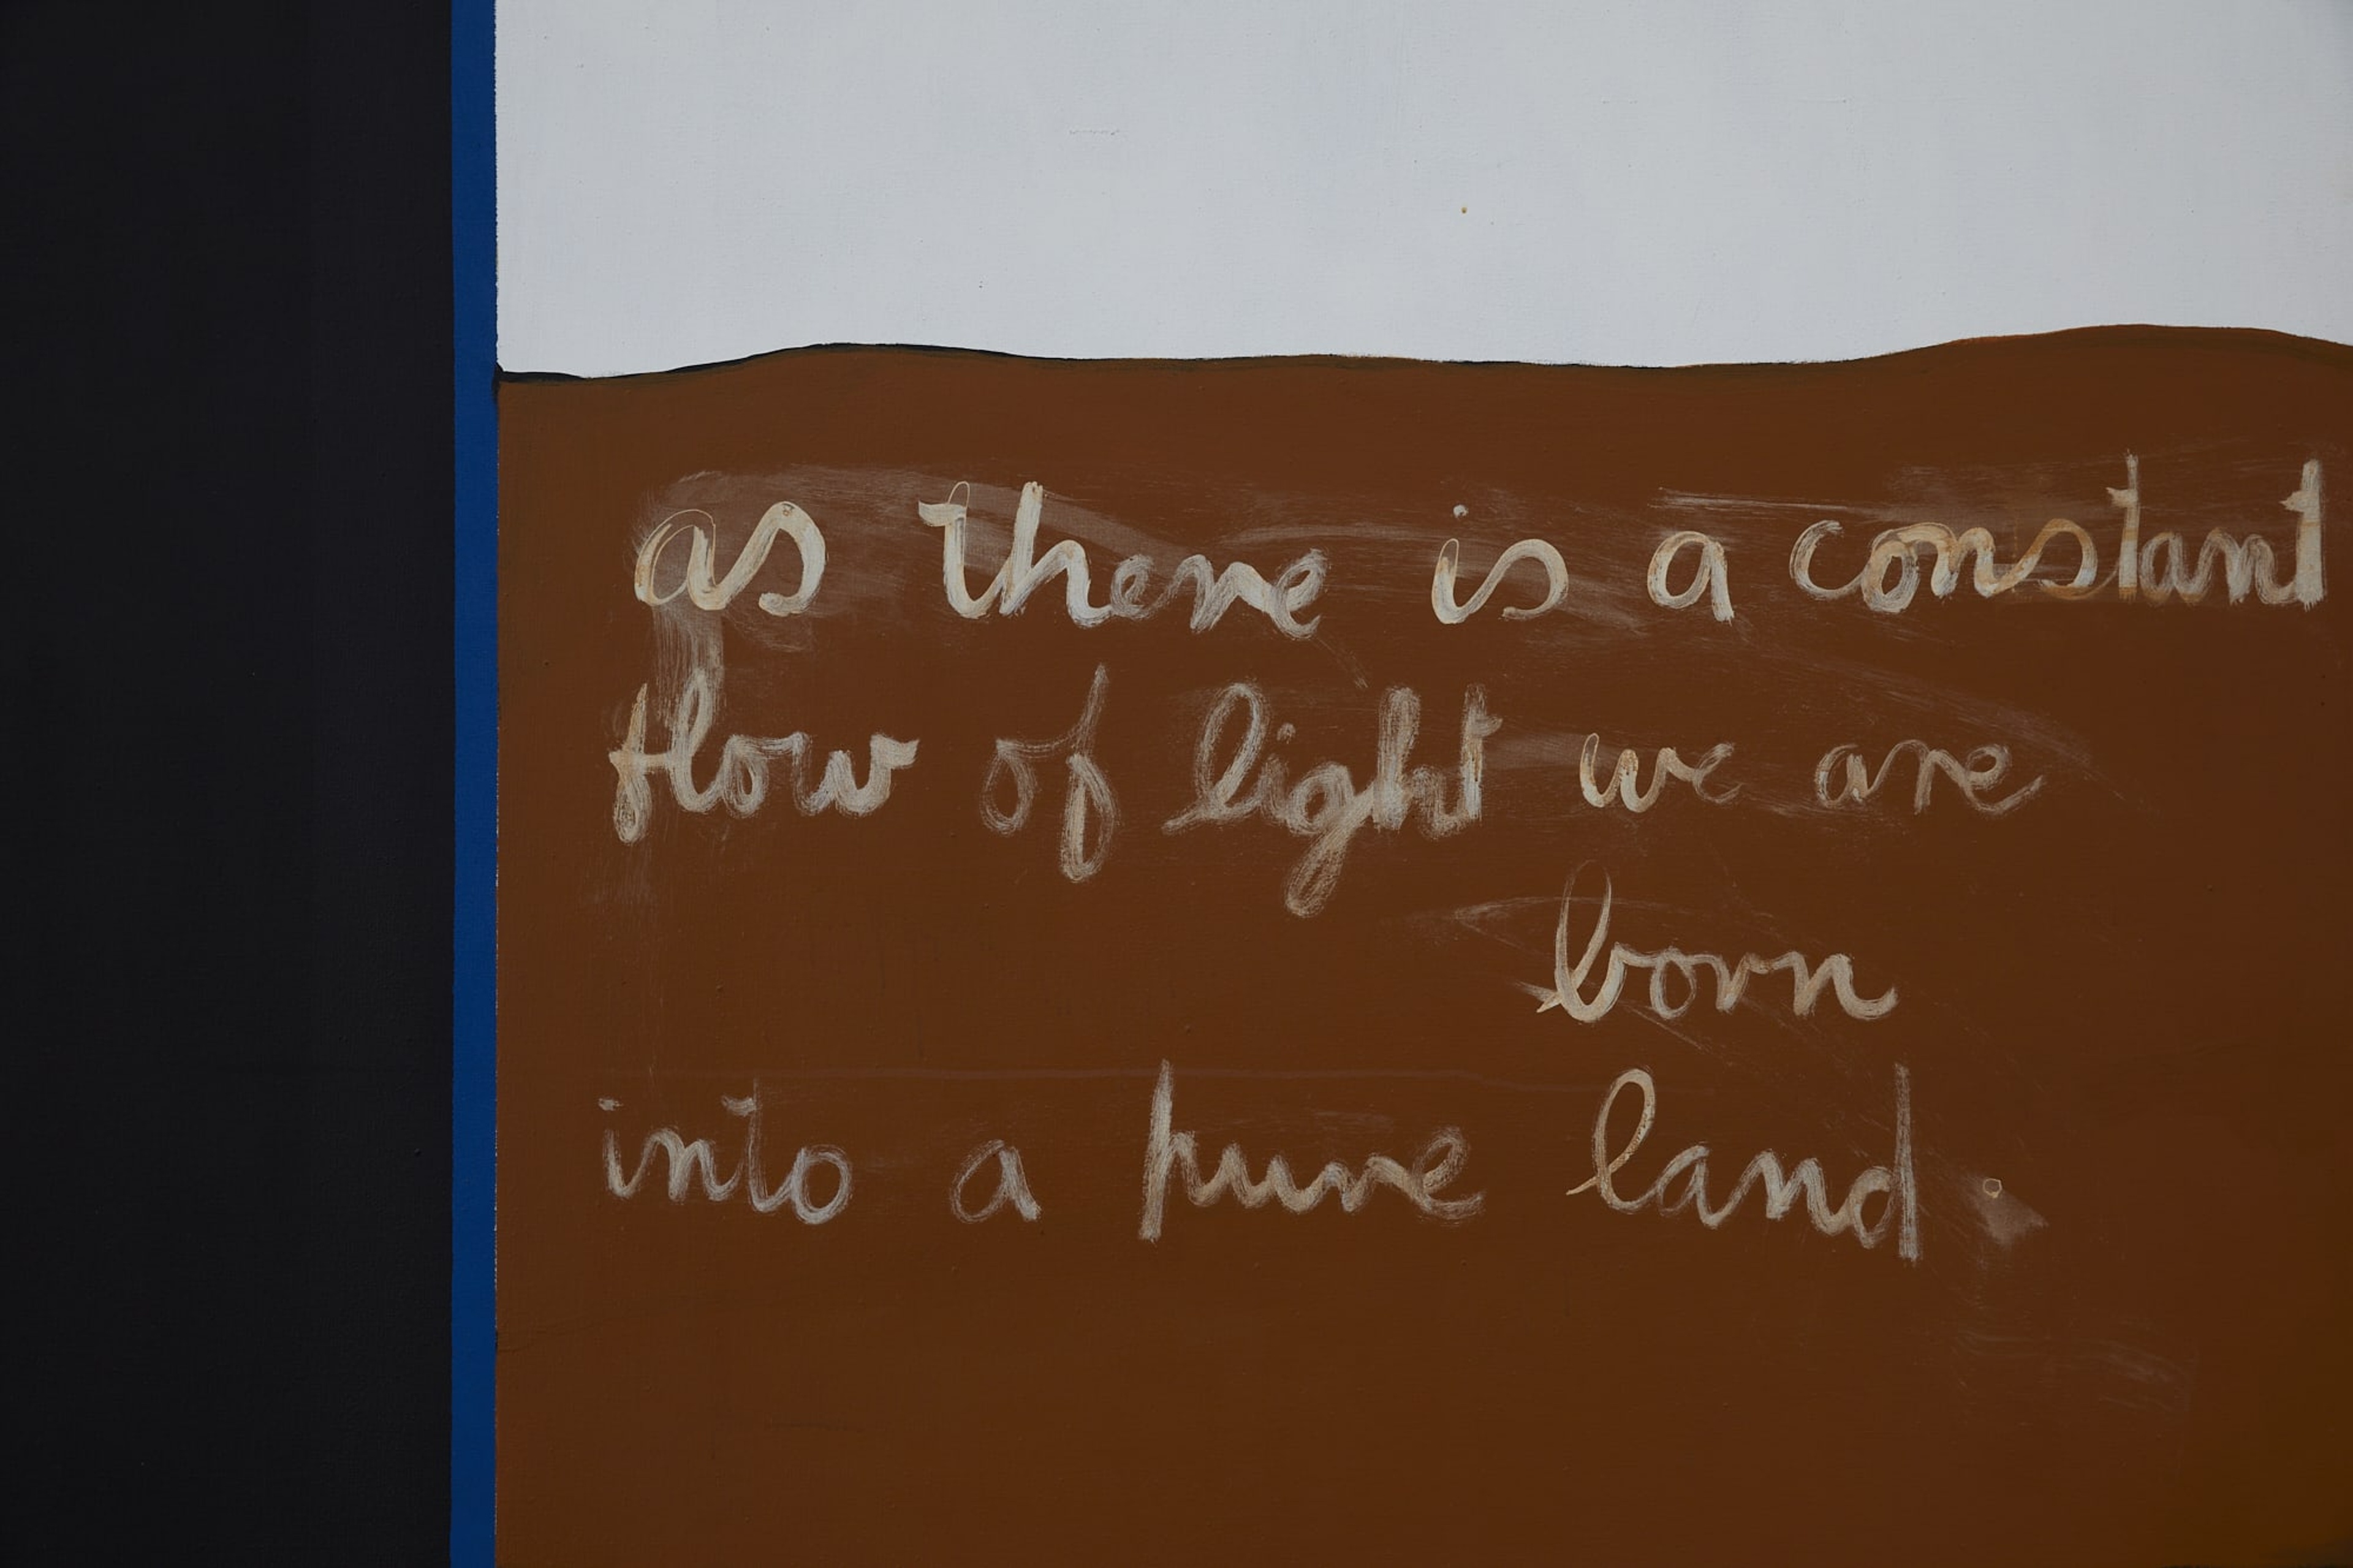 as there is a constant
flow of light we are
born
into a pure land.